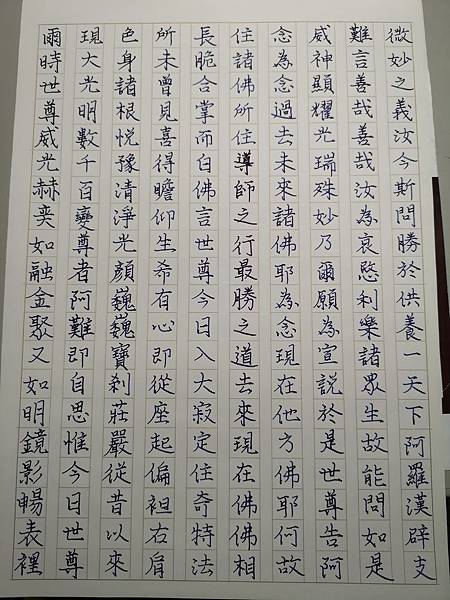 爾時世尊威光赫奕如融金聚又如明鏡影暢表裡
現大光明數千百變尊者阿難即自思惟今日世尊
色身諸根悅豫清淨光顏巍巍寶剎莊嚴從昔以來
所未曾見喜得瞻仰生希有心即從座起偏袒右肩
長跪合掌而白佛言世尊今日入大寂定住奇特法
住諸佛所住導師之行最勝之道去來現在佛佛相
念為念過去未來諸佛耶為念現在他方佛耶何故
威神顯耀光瑞殊妙乃爾願為宣說於是世尊告阿
難言善哉善哉汝為哀愍利樂諸眾生故能問如是
微妙之義汝今斯問勝於供養一天下阿羅漢辟支